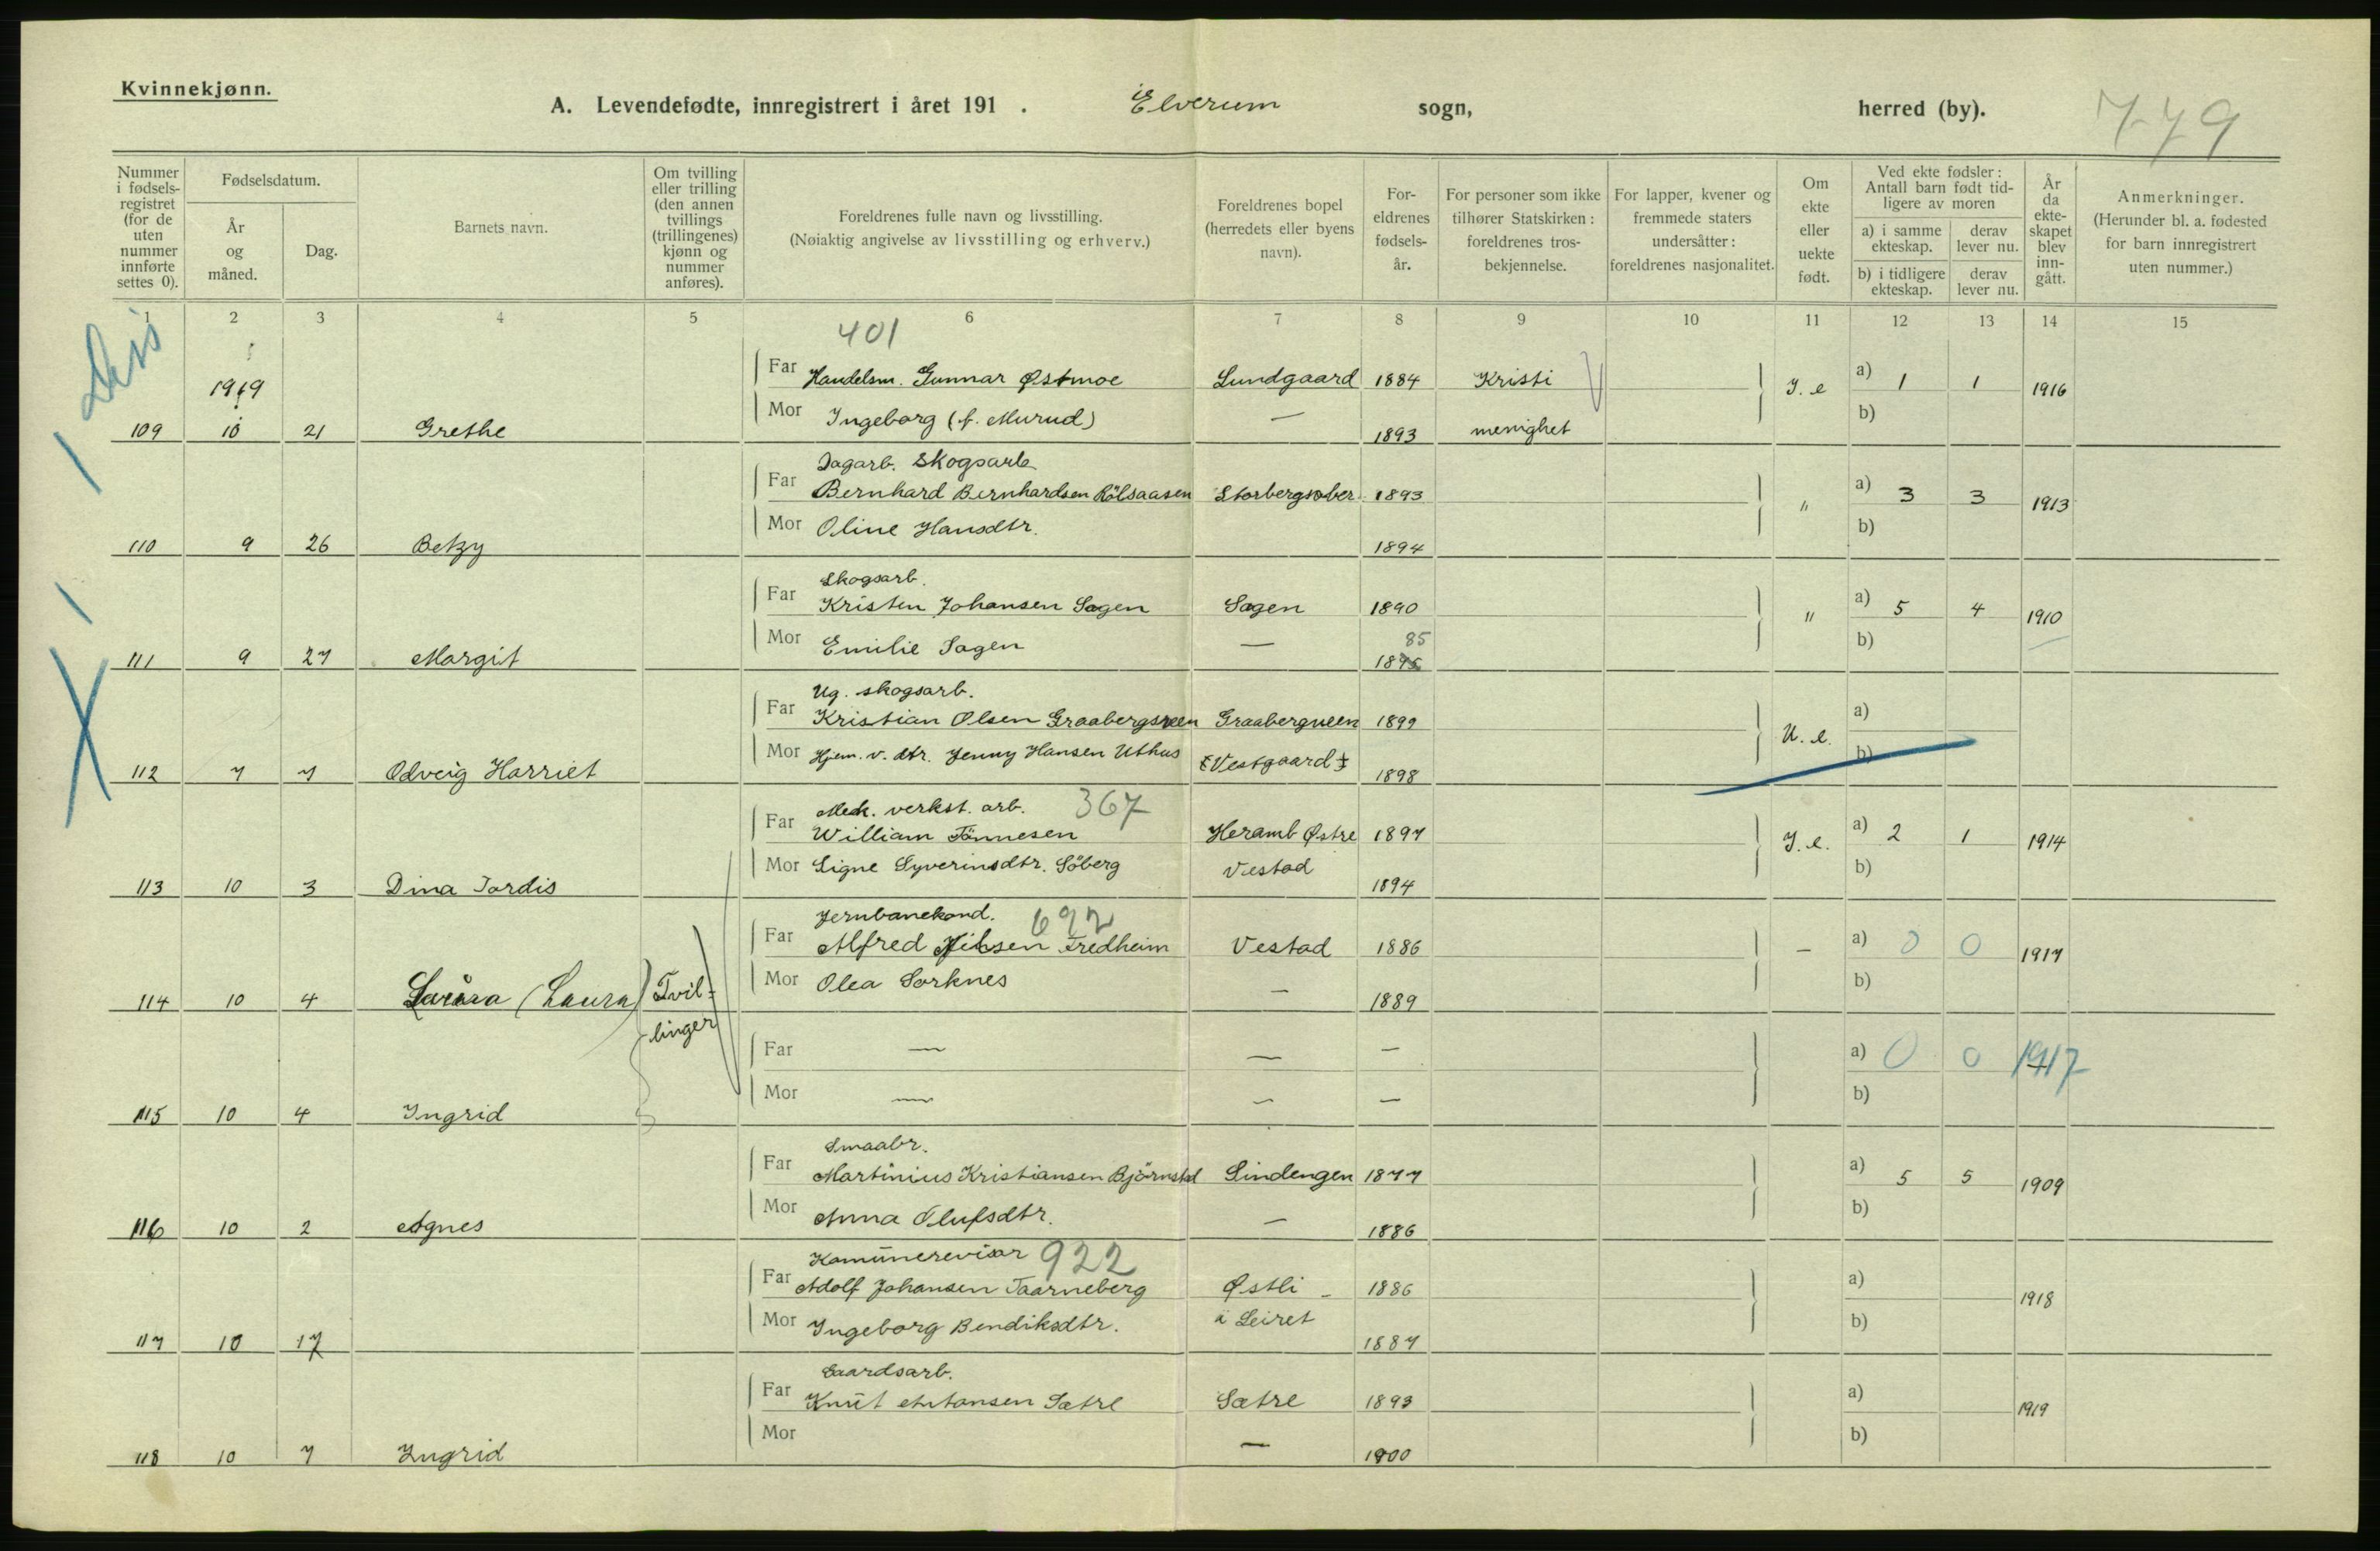 Kvinnekjønn.
A. Levendefødte, innregistrert i året 191 . Elverum sogn, herred (by). 779
Nummer i fødsels- registret (for de uten nummer innførte settes 0).
Fødselsdatum.
År og måned.
Dag.
Barnets navn.
Om tvilling eller trilling (den annen tvillings (trillingenes) kjønn og nummer anføres).
Foreldrenes fulle navn og livsstilling.
(Nøiaktig angivelse av livsstilling og erhverv.)
Foreldrenes bopel (herredets eller byens navn).
For- eldrenes fødsels- år.
For personer som ikke tilhører Statskirken: foreldrenes tros- bekjennelse.
For lapper, kvener og fremmede staters undersåtter: foreldrenes nasjonalitet.
Om ekte eller uekte født.
Ved ekte fødsler: Antall barn født tid- ligere av moren
a) i samme ekteskap.
derav lever nu.
b) i tidligere ekteskap.
derav lever nu.
År da ekte- skapet blev inn- gått.
Anmerkninger.
(Herunder bl. a. fødested for barn innregistrert uten nummer.)
1 2 3 4 5 6 7 8 9 10 11 12 13 14 15
401
1919
Far Handelsm. Gunnar Østmoe Lundgaard 1884 Kristi J. e a) 1 1 1916
Mor Ingeborg (f. Murud) — 1893 menighet b)
109 10 21 Grethe
Dagarb. Skogsarb.
Far Bernhard Bernhardsen Rölsaasen Storbergsober. 1893 " a) 3 3 1913
Mor Oline Hansdtr. 1894 b)
110 9 26 Betzy
Skogsarb.
Far Kristen Johansen Sagen Sagen 1890 " a) 5 4 1910
Mor Emilie Sagen — 85 b)
111 9 27 Margit
Ug. skogsarb.
Far Kristian Olsen Graabergsveen Graabergveen 1899 U. e. a)
Mor Hjem. v. dtr. Jenny Hansen Uthus Vestgaard 1898 b)
112 7 7 Odveig Harriet
Mek. verkst. arb. 367
Far William Tönnesen Heramb Østre 1897 J. e. a) 2 1 1914
Mor Signe Syverinsdtr. Söberg Vestad 1894 b)
113 10 3 Dina Tordis
Jernbanekond. 692
Far Alfred Nilsen Fredheim Vestad 1886 — a) 0 0 1917
Mor Olea Sorknes — 1889 b)
114 10 4 (Laura) Tvil=
linger
Far — — — a) 0 0 1917
Mor — — — b)
115 10 4 Ingrid
Smaabr.
Far Martinius Kristiansen Björnstad Lindengen 1877 a) 5 5 1909
Mor Anna Olufsdtr. — 1886 b)
116 10 2 Agnes
Komünerevisor 922
Far Adolf Johansen Taarneberg Østli 1886 a) 1918
Mor Ingeborg Bendiksdtr. i Leiret 1887 b)
117 10 17
Gaardsarb.
Far Knüt Antonsen Sætre Sætre 1893 a) 1919
Mor — 1900 b)
118 10 7 Ingrid